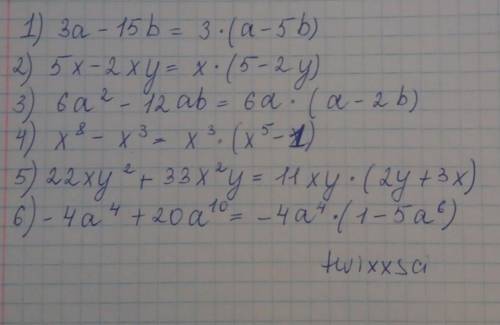 1) 3a - 15b = 3 · (a - 5b)
2) 5x - 2xy = x · (5 - 2y)
3) 6a² - 12ab = 6a · (a - 2b)
4) x⁸ - x³ = x³ · (x⁵ - 1)
5) 22xy² + 33x²y = 11xy · (2y + 3x)
6) - 4a⁴ + 20a¹⁰ = -4a⁴ · (1 - 5a⁶)